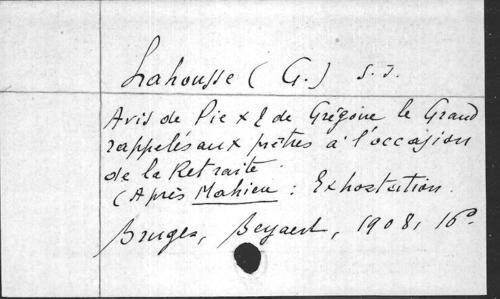 Lahousse (G.) S.J.
Avis de Pie X & de Grégoire le Grand
rappelés aux prêtres à l'occasion
de la Retraite.
(Après Mahieu : Exhortation.
Bruges, Beyaert, 1908, 16º